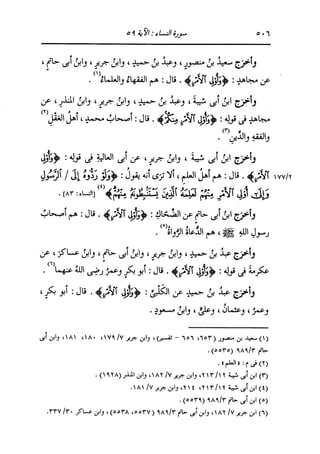 ٥٠٦ سورة النساء : الآية ٥٩
وأخرج سعيدُ بنُ منصورٍ، وعبدُ بنُ حميدٍ، وابنُ جريرٍ، وابنُ أبى حاتمٍ،
عن مجاهدٍ : ﴿وَأُوْلِي ٱلۡأَمۡرِ﴾ . قال : هم الفقهاءُ والعلماءُ(١) .
وأخرج ابنُ أبى شيبةَ، وعبدُ بنُ حميدٍ، وابنُ جريرٍ، وابنُ المنذرِ، عن
مجاهدٍ فى قولِه : ﴿وَأُوْلِي ٱلۡأَمۡرِ مِنكُمۡ﴾ . قال : أصحابُ محمدٍ، أهلُ العقلِ(٢)
والفقهِ والدينِ(٣) .
وأخرج ابنُ أبى شيبةَ، وابنُ جريرٍ، عن أبى العاليةِ فى قولِه : ﴿وَأُوْلِي
١٧٧/٢ ٱلۡأَمۡرِ﴾ . قال : هم أهلُ العلمِ، ألا ترَى أنه يقولُ : ﴿وَلَوۡ رَدُّوهُ إِلَى / ٱلرَّسُولِ
وَإِلَىٰٓ أُوْلِي ٱلۡأَمۡرِ مِنۡهُمۡ لَعَلِمَهُ ٱلَّذِينَ يَسۡتَنۢبِطُونَهُۥ مِنۡهُمۡ﴾(٤) [النساء : ٨٣] .
وأخرج ابنُ أبى حاتمٍ عن الضحَّاكِ : ﴿وَأُوْلِي ٱلۡأَمۡرِ﴾ . قال : هم أصحابُ
رسولِ اللهِ ﷺ، هم الدُّعاةُ الرُّواةُ(٥) .
وأخرج عبدُ بنُ حميدٍ، وابنُ جريرٍ، وابنُ أبى حاتمٍ، وابنُ عساكرَ، عن
عكرمةَ فى قولِه : ﴿وَأُوْلِي ٱلۡأَمۡرِ﴾ . قال : أبو بكرٍ وعمرُ رضِى اللهُ عنهما(٦) .
وأخرج عبدُ بنُ حميدٍ عن الكلبىِّ : ﴿وَأُوْلِي ٱلۡأَمۡرِ﴾ . قال : أبو بكرٍ،
وعمرُ، وعثمانُ، وعلىٌّ، وابنُ مسعودٍ.
(١) سعيد بن منصور (٦٥٣، ٦٥٦ - تفسير)، وابن جرير ١٧٩/٧، ١٨٠، ١٨١، وابن أبى
حاتم ٩٨٩/٣ (٥٥٣٥).
(٢) فى م : « العلم ».
(٣) ابن أبى شيبة ٢١٣/١٢، وابن جرير ١٨٢/٧، وابن المنذر (١٩٢٨).
(٤) ابن أبى شيبة ٢١٣/١٢، ٢١٤، وابن جرير ١٨١/٧.
(٥) ابن أبى حاتم ٩٨٩/٣ (٥٥٣٩).
(٦) ابن جرير ١٨٢/٧، وابن أبى حاتم ٩٨٩/٣ (٥٥٣٧، ٥٥٣٨)، وابن عساكر ٣٣٧/٣٠.